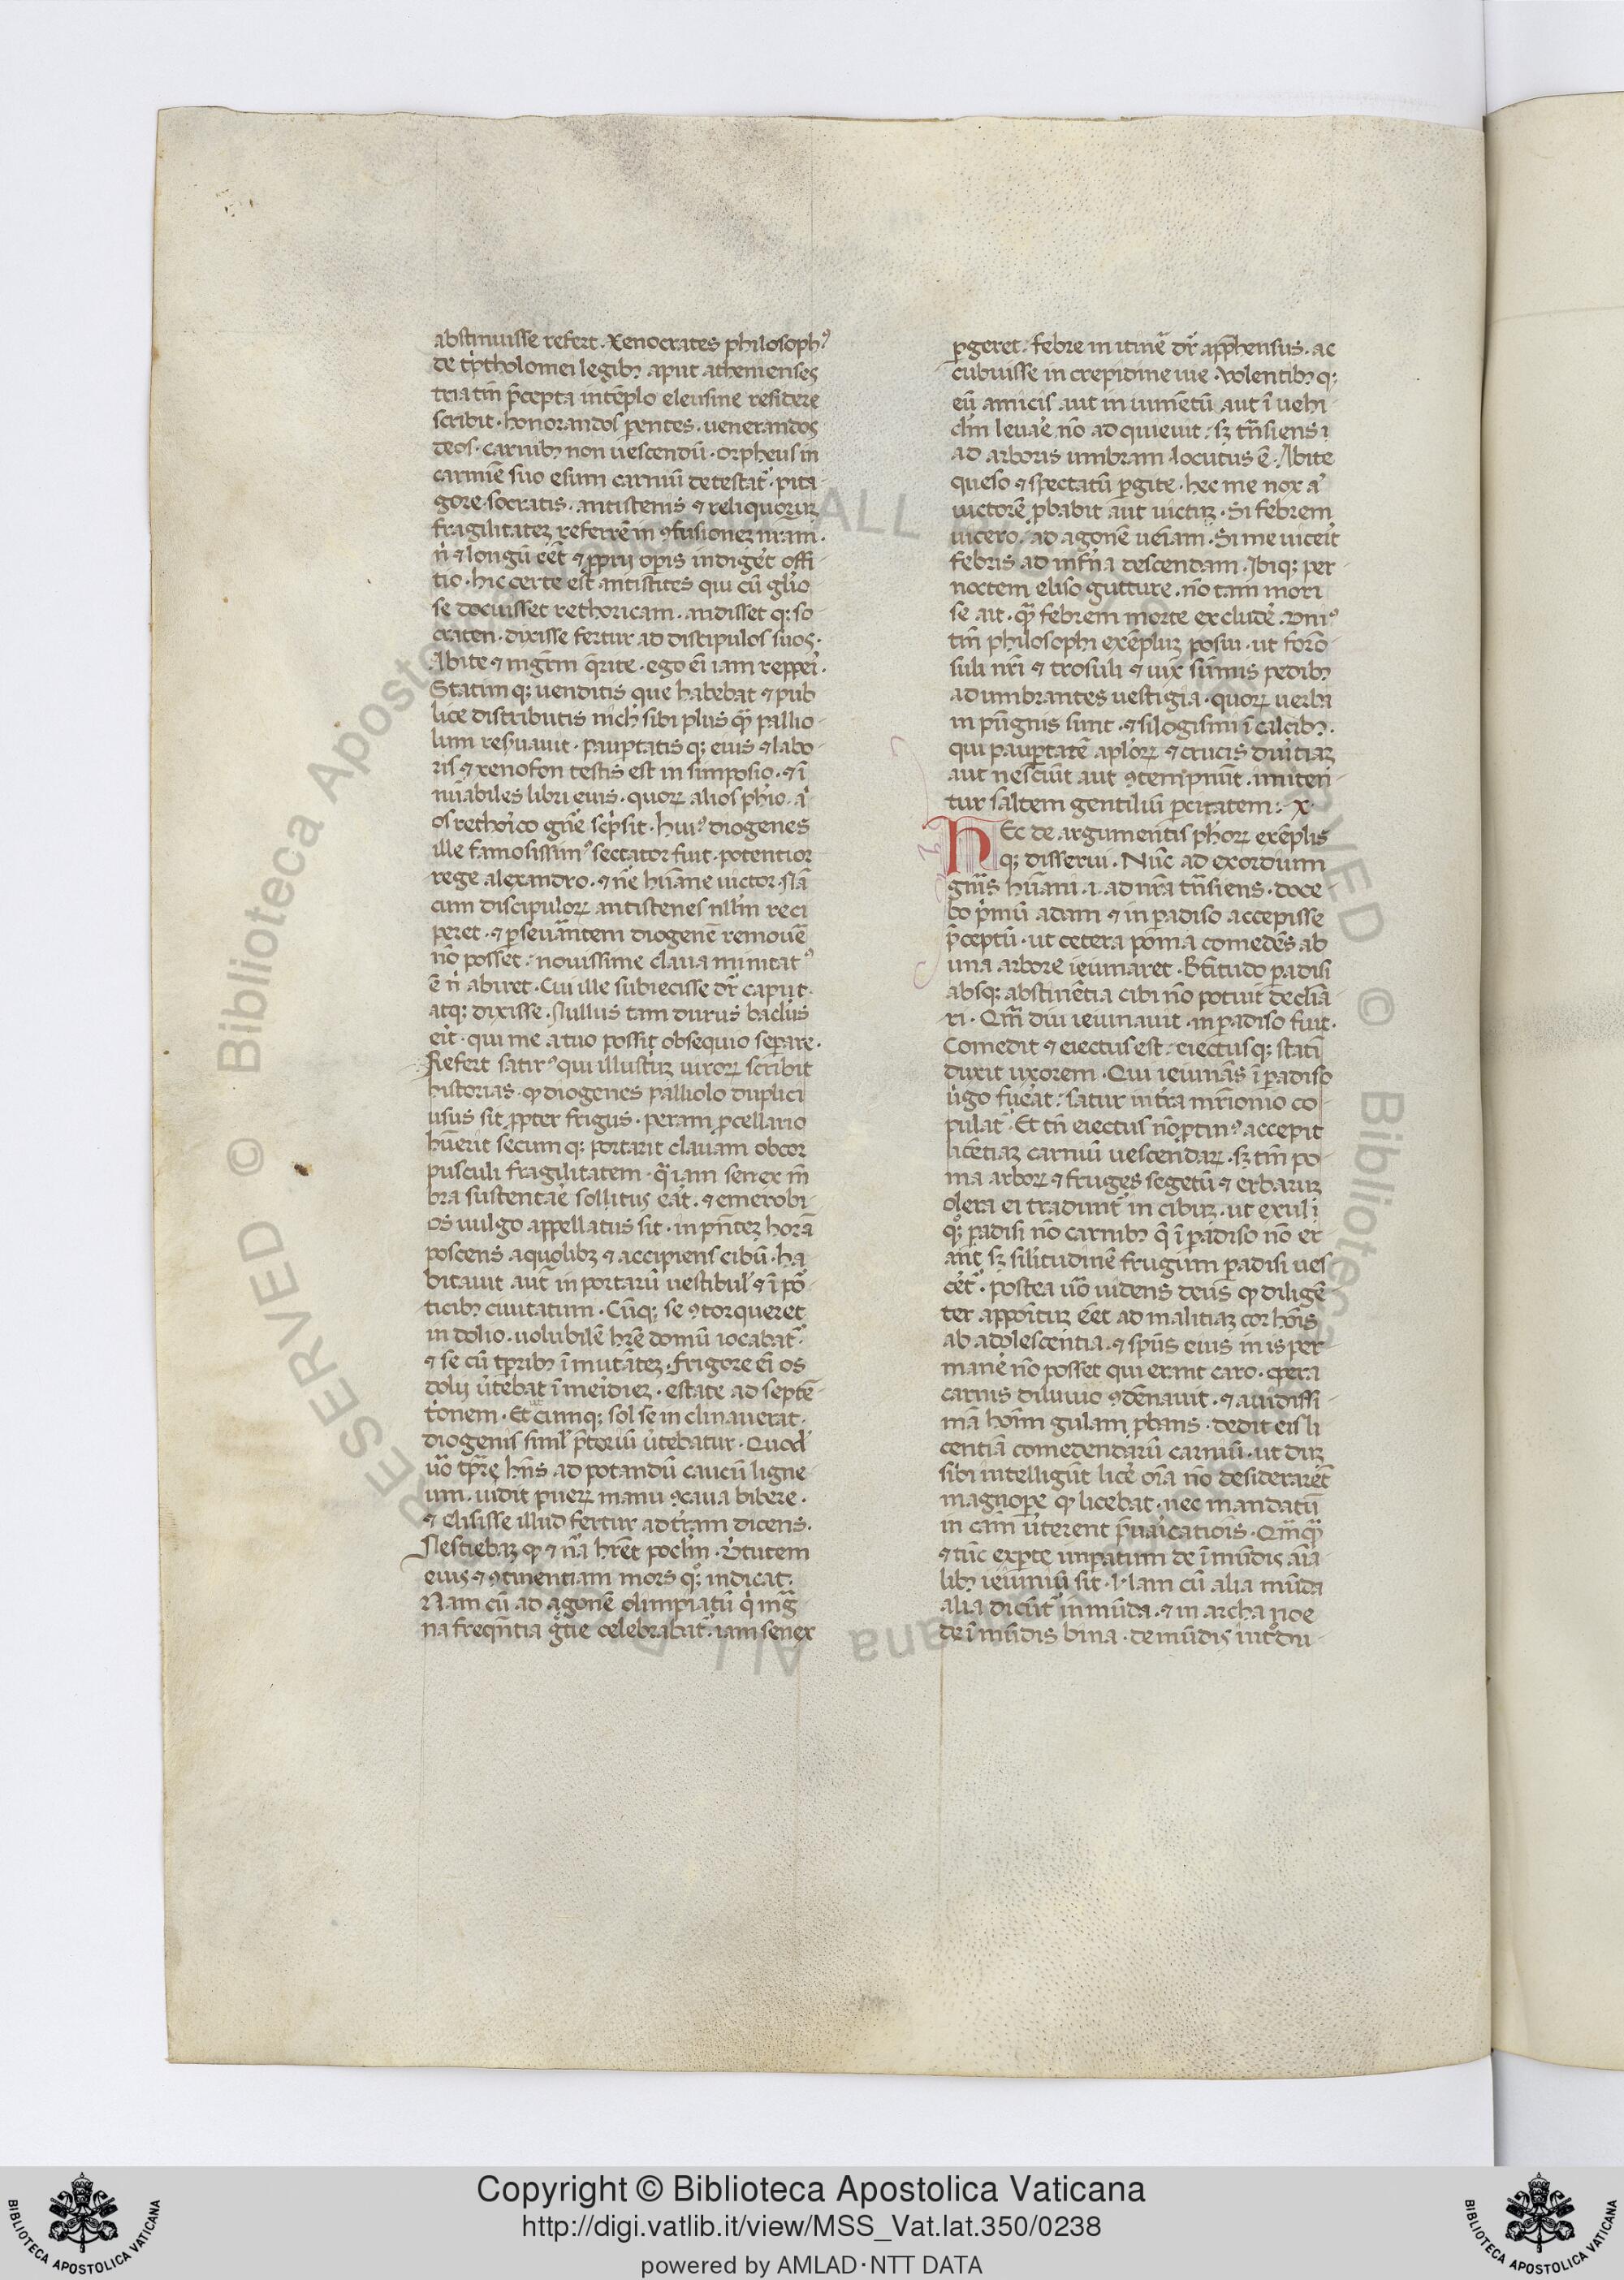 abstinuisse refert. Xenocrates philosophꝰ
de tͥptholomei legibꝫ aput athenienses
tria tm̄ p̄cepta in tēplo eleusine residere
scribit. honorandos ꝑentes. uenerandos
deos. carnibꝫ non uescendū. Orpheus in
carmīe suo esum carniū detestat᷑. pita
gore. socratis. antistenis ⁊ reliquoruꝫ
fragilitateꝫ referrēꝫ in ꝯfusioneꝫ nr̄am.
nͥ ⁊ longū eēt ⁊ ꝓprij oꝑis indigēt offi
tio. hic certe est antistites qui cū gl̓io
se docuisset rethoricam. audisset qꝫ so
craten. dixisse fertur ad discipulos suos.
Abite ⁊ mgr̄m q̄rite. ego eī iam repperi.
Statim qꝫ uenditis que habebat ⁊ pub
lice distributis nich̓ sibi plus qͣꝫ pallio
lum resͥuauit. pauꝑtatis qꝫ eius ⁊ labo
ris ⁊ xenofon testis est in simposio. ⁊ ī
nūabiles libri eius. quoꝝ alios ph̓io. a̓
os rethoͥco gn̄e scͥpsit. huiꝰ diogenes
ille famosissimꝰ sectator fuit. potentior
rege alexandro. ⁊ n̄e hūane uictor. Nā
cum discipuloꝝ antistenes nll̓m reci
peret. ⁊ ꝑseuāntem diogenē remouē
nō posset. nouissime claua minitatꝰ
ē nͥ abiret. Cui ille subiecisse dr̄ caput.
atqꝫ dixisse. Nullus tam durus bacl̓us
eit̓. qui me a tuo possit obsequio seꝑare.
Refert satirꝰ qui illustriuꝫ uiroꝝ scribit
historias. ꝙ diogenes palliolo duplici
usus sit ꝓpter frigus. peram ꝓ cellario
hūerit secum qꝫ portarit clauam ob cor
pusculi fragilitatem. qͣ iam senex mē
bra sustentaē̓ sollitus eāt. ⁊ emerobi
os uulgo appellatus sit. in pn̄teꝫ horā
poscens a quolibꝫ ⁊ accipiens cibū. ha
bitauit aut̄ in portarū uestibul̓ ⁊ ī poͬ
ticibꝫ ciuitatum. Cūqꝫ se ꝯtorqueret
in dolio. uolubilē hr̄e domū iocabat᷑.
⁊ se cū tꝑribꝫ īmutāteꝫ. Frigore eī os
dolij ūtebat ī meͥdieꝫ. estate ad septē
tͥonem. Et cumqꝫ sol se inclinauerat.
diogenis simil̓ p̄toriū ūtebatur. Quod̓
uō tꝑre hn̄s ad potandū caucū ligne
um. uidit pueꝝ manu ꝯcaua bibere.
⁊ elisisse illud fertur ad tr̄am dicens.
Nesciebaꝫ ꝙ ⁊ nā hr̄et pocl̓m. Ūtutem
eius ⁊ ꝯtinentiam mors qͦꝫ indicat.
Nam cū ad agonē olimpiatū qͥ mḡ
na freqn̄tia gͣtie celebrabat᷑. iam senex
ꝑgeret. febre in itinē dr̄ app̄hensus. ac
cubuisse in crepidine uie. Volentibꝫ qꝫ
eū amicis aut in iumētū aut ī uehi
cl̓m leuaē̓ nō adquieuit. sꝫ tn̄siens
ad arboris umbram locutus ē. Abite
queso ⁊ spectatū ꝑgite. hec me nox a̓
uictorē ꝓbabit aut uictuꝫ. Si febrem
uicero. ad agonē uēiam. Si me uiceit̓
febris ad infn̄a descendam. Ibiqꝫ per
noctem eliso gutture. nō tam mori
se ait. qͣꝫ febrem morte excludē̓. Uniꝰ
tm̄ philosophi exēpluꝫ posui. ut formō
suli nr̄i ⁊ trosuli ⁊ uix sūmis pedibꝫ
adumbrantes uestigia. quoꝝ uerba
in pūgnis sunt. ⁊ silogismi ī calcibꝫ.
qui pauꝑtatē apl̓oꝝ ⁊ crucis duͥtiaꝫ
aut nesciūt aut ꝯtempnūt. imiten
tur saltem gentiliū ꝑcitatem. X.
hEc de argumentis ph̓oꝝ exēplis
qꝫ disserui. Nūc ad exordium
gn̄is hūani .i. ad nr̄a tn̄siens. doce
bo pͥmū adam ⁊ in ꝑadiso accepisse
p̄ceptū. ut cetera poma comedēs ab
una arbore ieiunaret. Bt̄itudo ꝑadisi
absqꝫ abstinētia cibi nō potuit declīa
ri. Qm̄ diu ieiunauit. in ꝑadiso fuit.
Comedit ⁊ eiectus est. eiectusqꝫ statī
duxit uxorem. Qui ieiunās ī ꝑadiso
ūgo fueāt. satur in tr̄a mr̄ionio co
pulat᷑. Et tn̄ eiectus nō ꝓtinꝰ accepit
licētiaꝫ carniū uescendaꝝ. sꝫ tm̄ po
ma arboꝝ ⁊ fruges segetū ⁊ erbaruꝫ
olera ei tradunt᷑ in cibuꝫ. ut exuli
qͦꝫ ꝑadisi nō carnibꝫ q̄ ī ꝑadiso nō er
ant sꝫ sil̓itudinē frugum ꝑadisi ues
cēt᷑. Postea uō uidens deus ꝙ diligē
ter appoītuꝫ eēt ad malitiaꝫ cor hoīs
ab adolescentia. ⁊ spūs eius in is per
manē̓ nō posset qui erant caro. opera
carnis diluuio ꝯdēnauit. ⁊ auidissi
mā hoīm gulam ꝓbans. dedit eis li
centiā comedendarū carniū. ut duꝫ
sibi intelligūt licē̓ oīa nō desiderarēt
magnoꝑe ꝙ licebat. nec mandatū
in cām ūterent p̄uaͥcatiois. Qm̄qͣꝫ
⁊ tūc ex ꝑte imꝑatum de īmūdis aīa
libꝫ ieiuniū sit. Nam cū alia mūda
alia dicūt᷑ inmūda. ⁊ in archa noe
de īmūdis bina. de mūdis